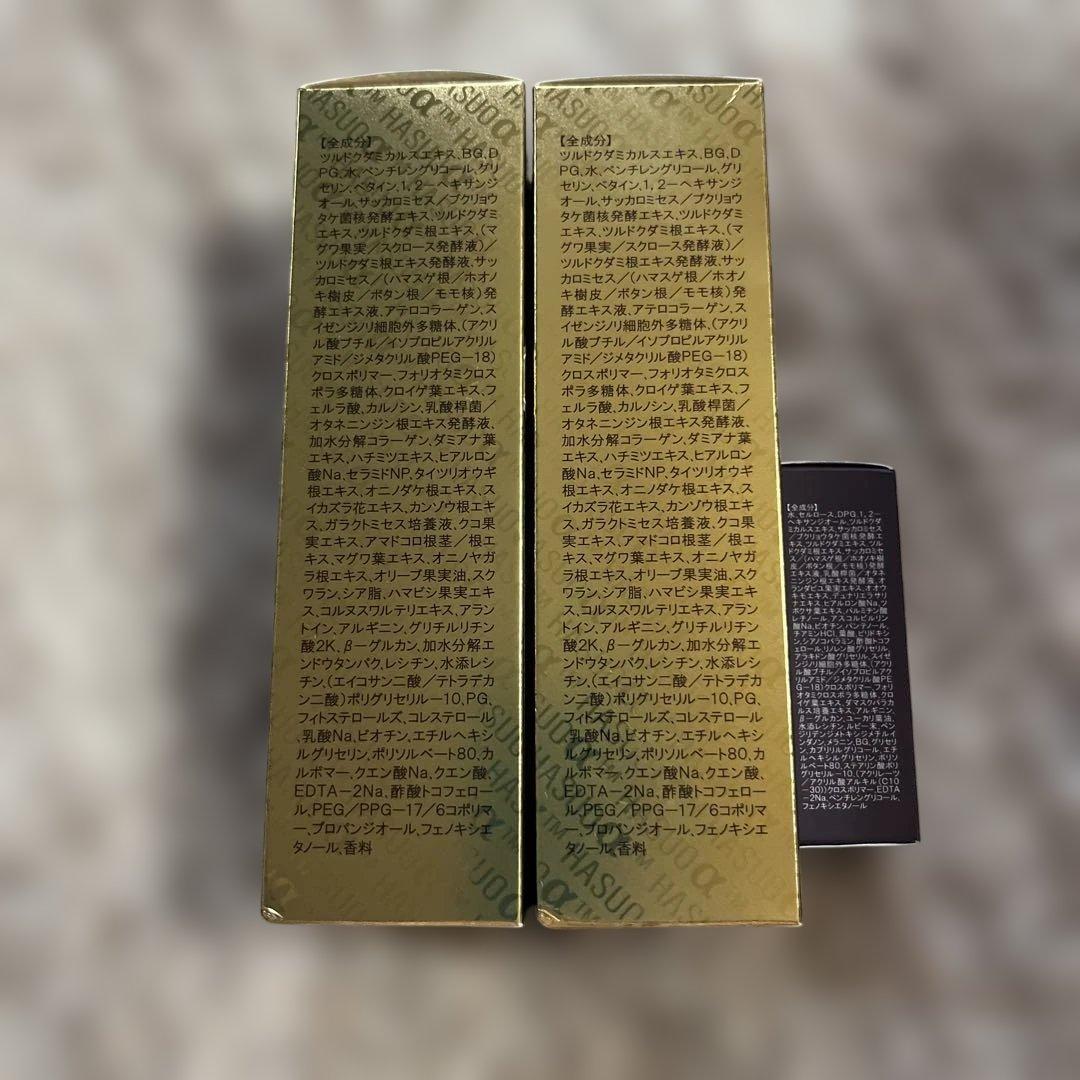 【全成分】
ツルドクダミカルスエキス、BG、D
PG、水、ペンチレングリコール、グリ
セリン、ベタイン、1,2ーヘキサンジ
オール、サッカロミセス／ブクリョウ
タケ菌核発酵エキス、ツルドクダミ
エキス、ツルドクダミ根エキス、(マ
グワ果実／スクロース発酵液)／
ツルドクダミ根エキス発酵液、サッ
カロミセス／(ハマスゲ根／ホオノ
キ樹皮／ボタン根／モモ核)発
酵エキス液、アテロコラーゲン、ス
イゼンジノリ細胞外多糖体、(アクリ
ル酸ブチル／イソプロピルアクリル
アミド／ジメタクリル酸PEG－18)
クロスポリマー、フォリオタミクロス
ポラ多糖体、クロイゲ葉エキス、フ
ェルラ酸、カルノシン、乳酸桿菌／
オタネニンジン根エキス発酵液、
加水分解コラーゲン、ダミアナ葉
エキス、ハチミツエキス、ヒアルロン
酸Na、セラミドNP、タイツリオウギ
根エキス、オニノダケ根エキス、ス
イカズラ花エキス、カンゾウ根エキ
ス、ガラクトミセス培養液、クコ果
実エキス、アマドコロ根茎／根エ
キス、マグワ葉エキス、オニノヤガ
ラ根エキス、オリーブ果実油、スク
ワラン、シア脂、ハマビシ果実エキ
ス、コルヌスワルテリエキス、アラン
トイン、アルギニン、グリチルリチン
酸2K、β－グルカン、加水分解エ
ンドウタンパク、レシチン、水添レシ
チン、(エイコサン二酸／テトラデカ
ン二酸)ポリグリセリル－10、PG、
フィトステロールズ、コレステロール
、乳酸Na、ビオチン、エチルヘキシ
ルグリセリン、ポリソルベート80、カ
ルボマー、クエン酸Na、クエン酸、
EDTA－2Na、酢酸トコフェロー
ル、PEG／PPG－17／6コポリマ
ー、プロパンジオール、フェノキシエ
タノール、香料
【全成分】
ツルドクダミカルスエキス、BG、D
PG、水、ペンチレングリコール、グリ
セリン、ベタイン、1,2ーヘキサンジ
オール、サッカロミセス／ブクリョウ
タケ菌核発酵エキス、ツルドクダミ
エキス、ツルドクダミ根エキス、(マ
グワ果実／スクロース発酵液)／
ツルドクダミ根エキス発酵液、サッ
カロミセス／(ハマスゲ根／ホオノ
キ樹皮／ボタン根／モモ核)発
酵エキス液、アテロコラーゲン、ス
イゼンジノリ細胞外多糖体、(アクリ
ル酸ブチル／イソプロピルアクリル
アミド／ジメタクリル酸PEG－18)
クロスポリマー、フォリオタミクロス
ポラ多糖体、クロイゲ葉エキス、フ
ェルラ酸、カルノシン、乳酸桿菌／
オタネニンジン根エキス発酵液、
加水分解コラーゲン、ダミアナ葉
エキス、ハチミツエキス、ヒアルロン
酸Na、セラミドNP、タイツリオウギ
根エキス、オニノダケ根エキス、ス
イカズラ花エキス、カンゾウ根エキ
ス、ガラクトミセス培養液、クコ果
実エキス、アマドコロ根茎／根エ
キス、マグワ葉エキス、オニノヤガ
ラ根エキス、オリーブ果実油、スク
ワラン、シア脂、ハマビシ果実エキ
ス、コルヌスワルテリエキス、アラン
トイン、アルギニン、グリチルリチン
酸2K、β－グルカン、加水分解エ
ンドウタンパク、レシチン、水添レシ
チン、(エイコサン二酸／テトラデカ
ン二酸)ポリグリセリル－10、PG、
フィトステロールズ、コレステロール
、乳酸Na、ビオチン、エチルヘキシ
ルグリセリン、ポリソルベート80、カ
ルボマー、クエン酸Na、クエン酸、
EDTA－2Na、酢酸トコフェロー
ル、PEG／PPG－17／6コポリマ
ー、プロパンジオール、フェノキシエ
タノール、香料
【全成分】
水、セルロース、DPG、1,2－
ヘキサンジオール、ツルドクダ
ミカルスエキス、サッカロミセス
／ブクリョウタケ菌核発酵エ
キス、ツルドクダミエキス、ツル
ドクダミ根エキス、サッカロミセ
ス／(ハマスゲ根／ホオノキ樹
皮／ボタン根／モモ核)発酵
エキス液、乳酸桿菌／オタネ
ニンジン根エキス発酵液、オ
ランダビユ果実エキス、オオウ
キモエキス、デュナリエラサリ
ナエキス、ヒアルロン酸Na、ツ
ボクサ葉エキス、パルミチン酸
レチノール、アスコルビルリン
酸Na、ビオチン、パンテノール、
チアミンHCl、葉酸、ピリドキシ
ン、シアノコバラミン、酢酸トコフ
ェロール、リノレン酸グリセリル、
アラキドン酸グリセリル、スイゼ
ンジノリ細胞外多糖体、(アクリ
ル酸ブチル／イソプロピルアク
リルアミド／ジメタクリル酸PE
G－18)クロスポリマー、フォリ
オタミクロスポラ多糖体、クロ
イゲ葉エキス、ダマスクバラカ
ルス培養エキス、アルギニン、
β－グルカン、ユーカリ葉油、
水添レシチン、ルビー末、ベン
ジリデンジメトキシジメチルイ
ンダノン、メラニン、BG、グリセリ
ン、カプリリルグリコール、エチ
ルヘキシルグリセリン、ポリソル
ベート80、ステアリン酸ポリ
グリセリル－10、(アクリレーツ
／アクリル酸アルキル(C10
－30))クロスポリマー、EDTA
－2Na、ペンチレングリコール、
フェノキシエタノール
HASUOα™